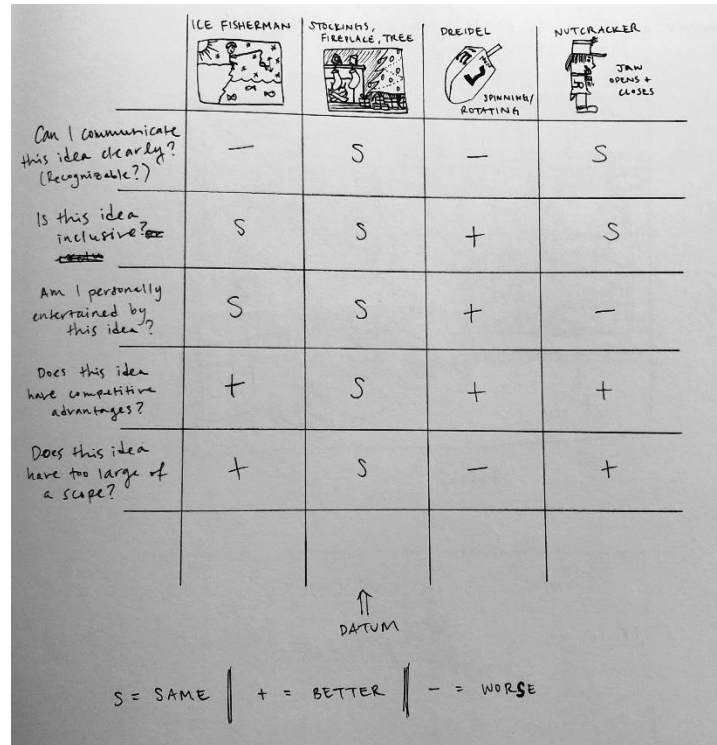 ICE FISHERMAN
STOCKINGS,
FIREPLACE, TREE
DREIDEL
SPINNING/
ROTATING
NUTCRACKER
JAW
OPENS +
CLOSES
Can I communicate
this idea clearly?
(Recognizable?)
— S — S
Is this idea
inclusive?
S S + S
Am I personally
entertained by
this idea?
S S + —
Does this idea
have competitive
advantages?
+ S + +
Does this idea
have too large of
a scope?
+ S — +
DATUM
S = SAME + = BETTER - = WORSE